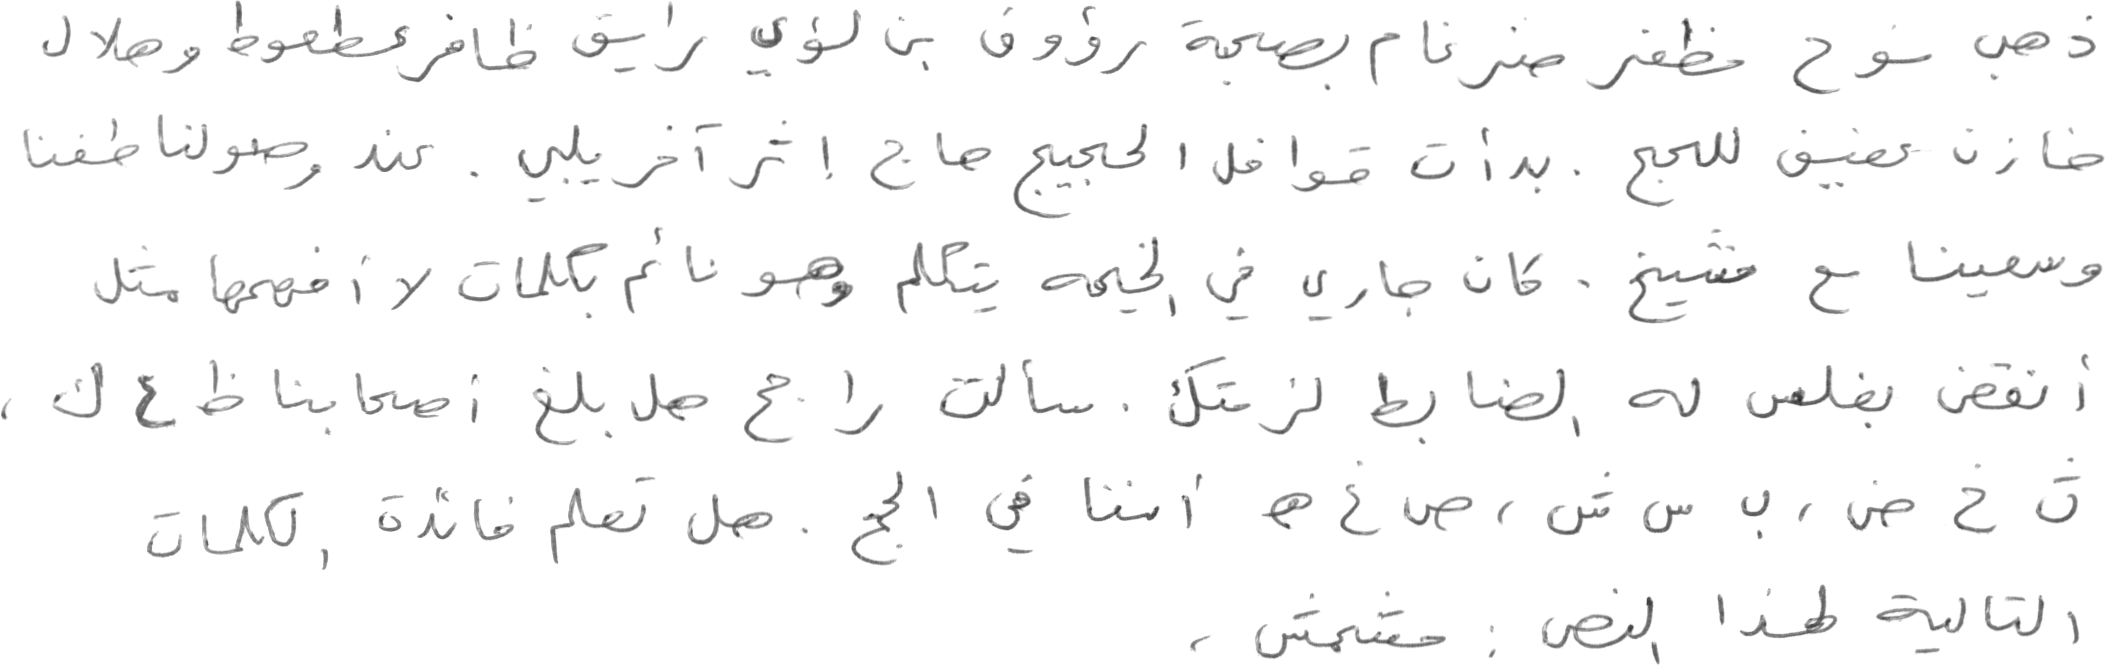 ذهب نوح مظفر ضرغام بصحبة رؤوف بن لؤي رايق ظافر عطعوط وهلال
خازن عفيف للحج . بدأت قوافل الحجيج حاج إثر آخر يلبي . عند وصولنا طفنا
وسعينا مع مشيخ . كان جاري في الخيمه يتكلم وهو نائم بكلمات لا أفهمها مثل
أنقض بغلس له الضابط لزمتك . سألت راجح هل بلغ أصحابنا ظ ع ك ،
ث خ ض ، ب س ش ، ص غ ه أمننا في الحج . هل تعلم فائدة الكلمات
التالية لهذا النص : مشمش ،